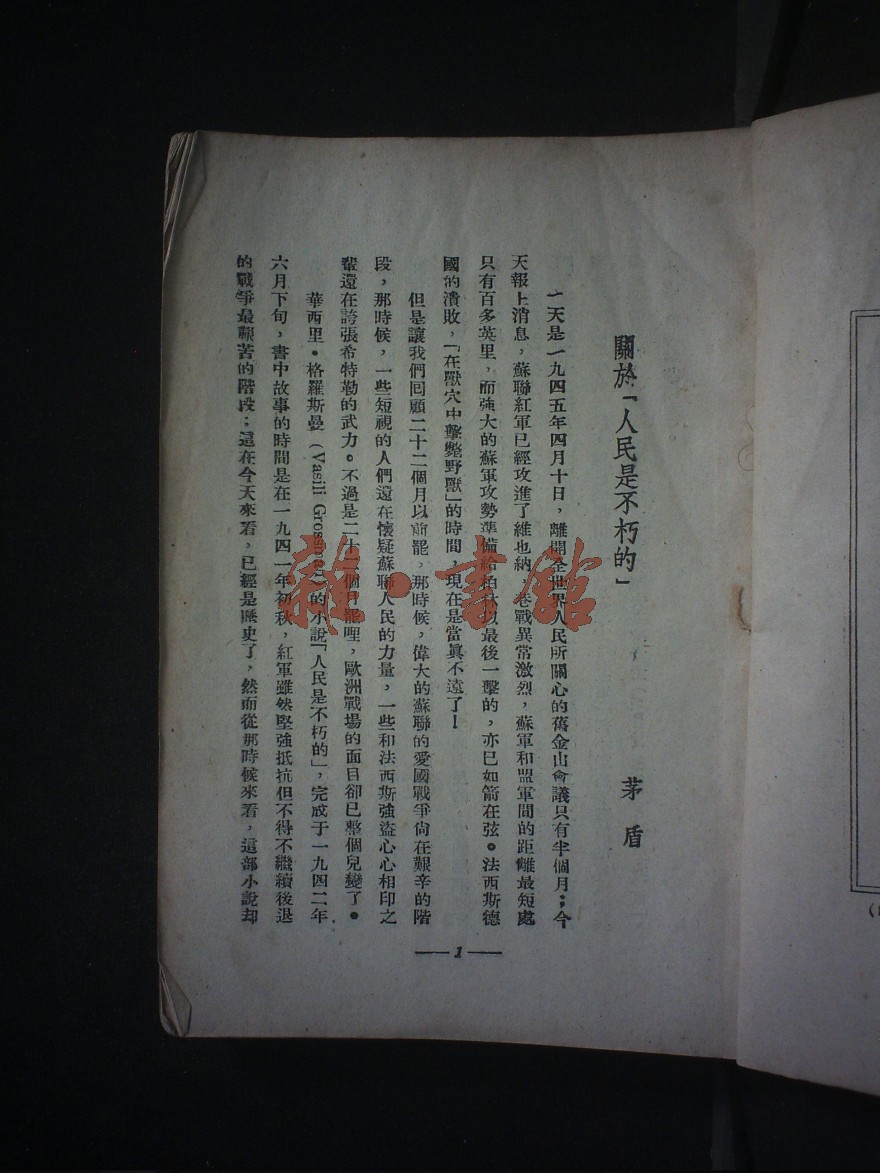 關於「人民是不朽的」
茅盾
今天是一九四五年四月十日，離開全世界人民所關心的舊金山會議只有半個月；今
天報上消息，蘇聯紅軍已經攻進了維也納 巷戰異常激烈，蘇軍和盟軍間的距離最短處
只有百多英里，而強大的蘇軍攻勢準備給柏林以最後一擊的，亦已如箭在弦。法西斯德
國的潰敗，「在獸穴中擊斃野獸」的時間，現在是當眞不遠了！
但是讓我們回顧二十二個月以前罷，那時候，偉大的蘇聯的愛國戰爭尙在艱辛的階
段，那時候，一些短視的人們還在懷疑蘇聯人民的力量，一些和法西斯強盜心心相印之
輩還在誇張希特勒的武力。不過是二十二個月罷哩，歐洲戰場的面目卻已整個兒變了。
華西里・格羅斯曼（Vasili Grossman）的小說「人民是不朽的」，完成于一九四二年
六月下旬，書中故事的時間是在一九四一年初秋，紅軍雖然堅強抵抗但不得不繼續後退
的戰爭最艱苦的階段；這在今天來看，已經是歷史了，然而從那時候來看，這部小說却
— 1 —
雜・書館